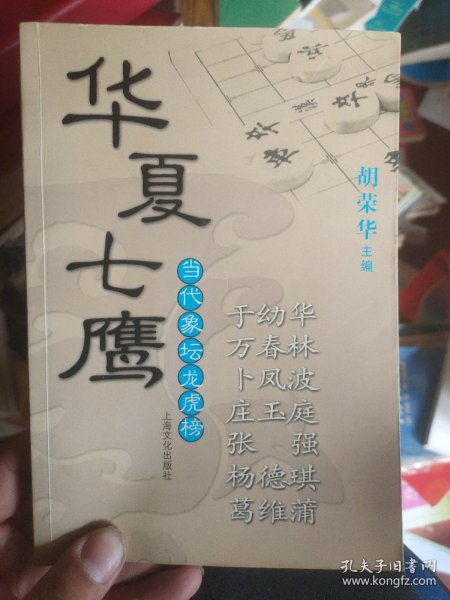 华夏七鹰
胡荣华
主编
当代象坛龙虎榜
于幼华
万春林
卜凤波
庄玉庭
张强
杨德琪
葛维蒲
上海文化出版社
孔夫子旧书网
www.kongfz.com